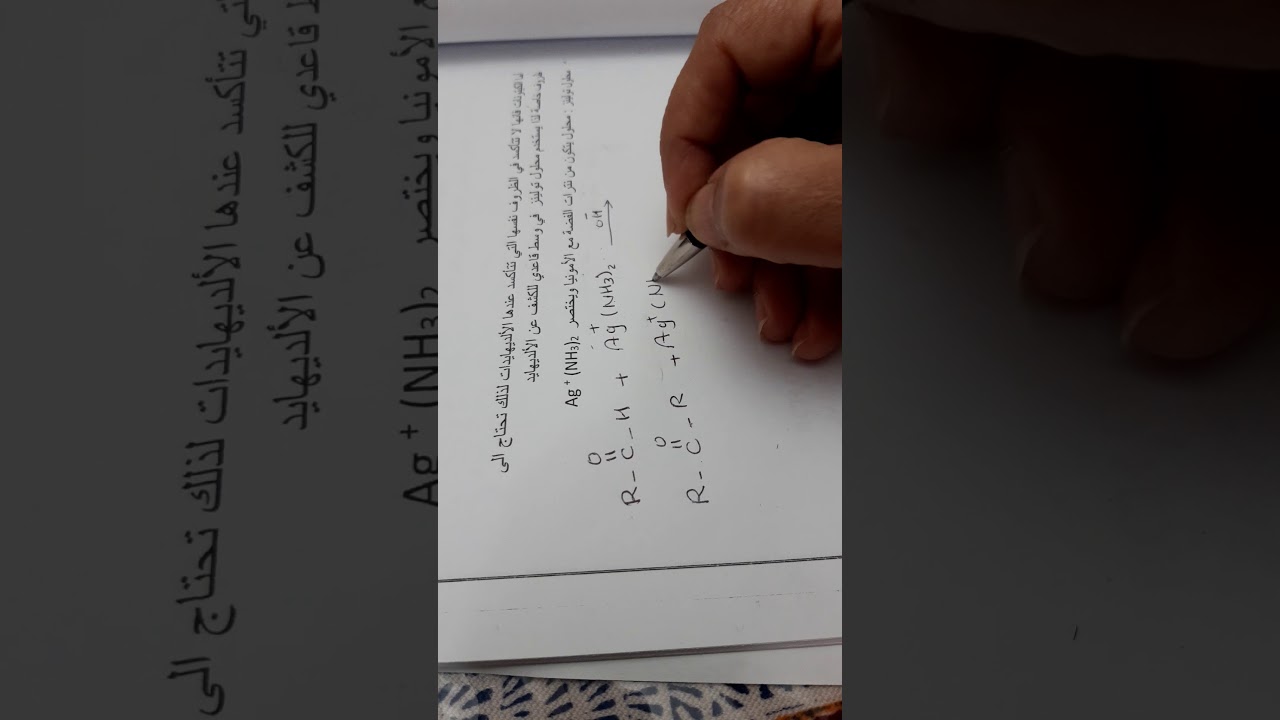 أما الكيتونات فانها لا تتأكسد في الظروف نفسها التي تتأكسد عندها الألديهايدات لذلك تحتاج الى
ظروف خاصة لذا يستخدم محلول تولينز في وسط قاعدي للكشف عن الألديهايد
محلول تولينز : محلول يتكون من نترات الفضة مع الأمونيا ويختصر Ag⁺(NH₃)₂
O
R - C - H + Ag⁺(NH3)₂ OH⁻ →
O
R - C - R + Ag⁺(N
تي تتأكسد عندها الألديهايدات لذلك تحتاج الى
قاعدي للكشف عن الألديهايد
الأمونيا ويختصر Ag⁺(NH₃)₂